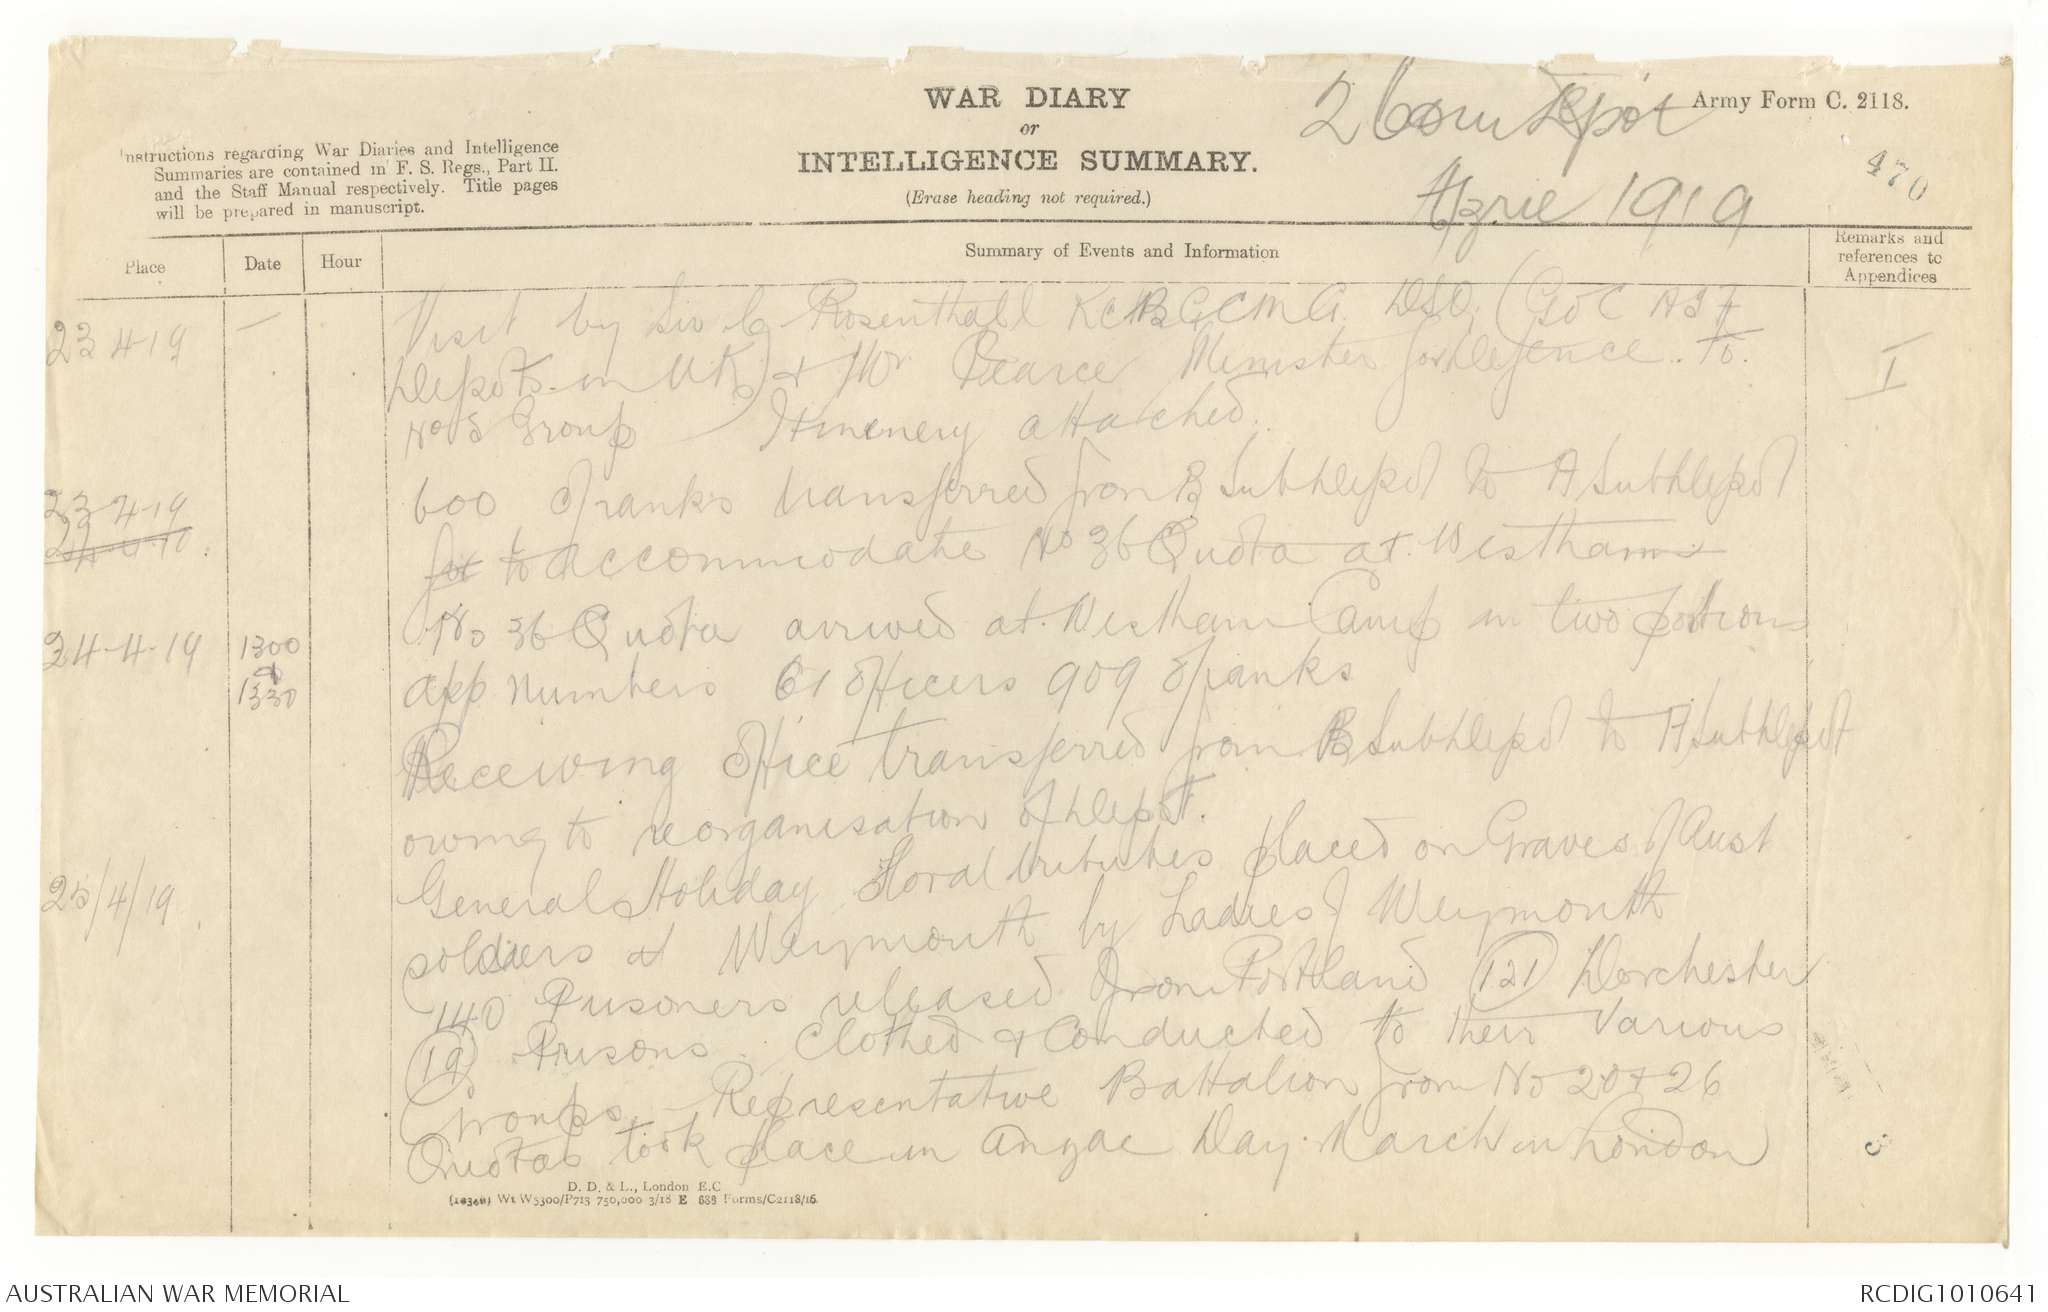 WAR DIARY
or
INTELLIGENCE SUMMARY.
(Erase heading not required.)
Army Form C. 2118.
2 Com Depot
April 1919
470
Instructions regarding War Diaries and Intelligence
Summaries are contained in F. S. Regs., Part II.
and the Staff Manual respectively. Title pages
will be prepared in manuscript.
Place
Date
Hour
Summary of Events and Information
Remarks and
references to
Appendices
23 4 19 — Visit by Sir C Rosenthall KCB CMG DSO (GOC AIF
Depots in UK) & Mr Pearce Minister for Defence to
No 3 Group — Itinenery attached.
I
23 4 19 600 O/ranks transferred from B SubDepot to A SubDepot
24 4 19 for to accommodate No 36 Quota at Westham
24-4-19 1300 No 36 Quota arrived at Westham Camp in two portions
&
1330 app numbers 61 Officers 909 O/ranks
Receiving Office transferred from B SubDepot to A SubDepot
owing to reorganisation of Depot.
25/4/19 General Holiday Floral tributes placed on Graves of Aust
soldiers at Weymouth by Ladies of Weymouth
140 Prisoners released from Portland (121) Dorchester
(19) Prisons. Clothed & Conducted to their various
Groups. — Representative Battalion from No 20 & 26
Quotas took place in Anzac Day March in London
3
D. D. & L., London E.C
Wt W5300/P713 750,000 3/18 E 688 Forms/C2118/16.
AUSTRALIAN WAR MEMORIAL
RCDIG1010641